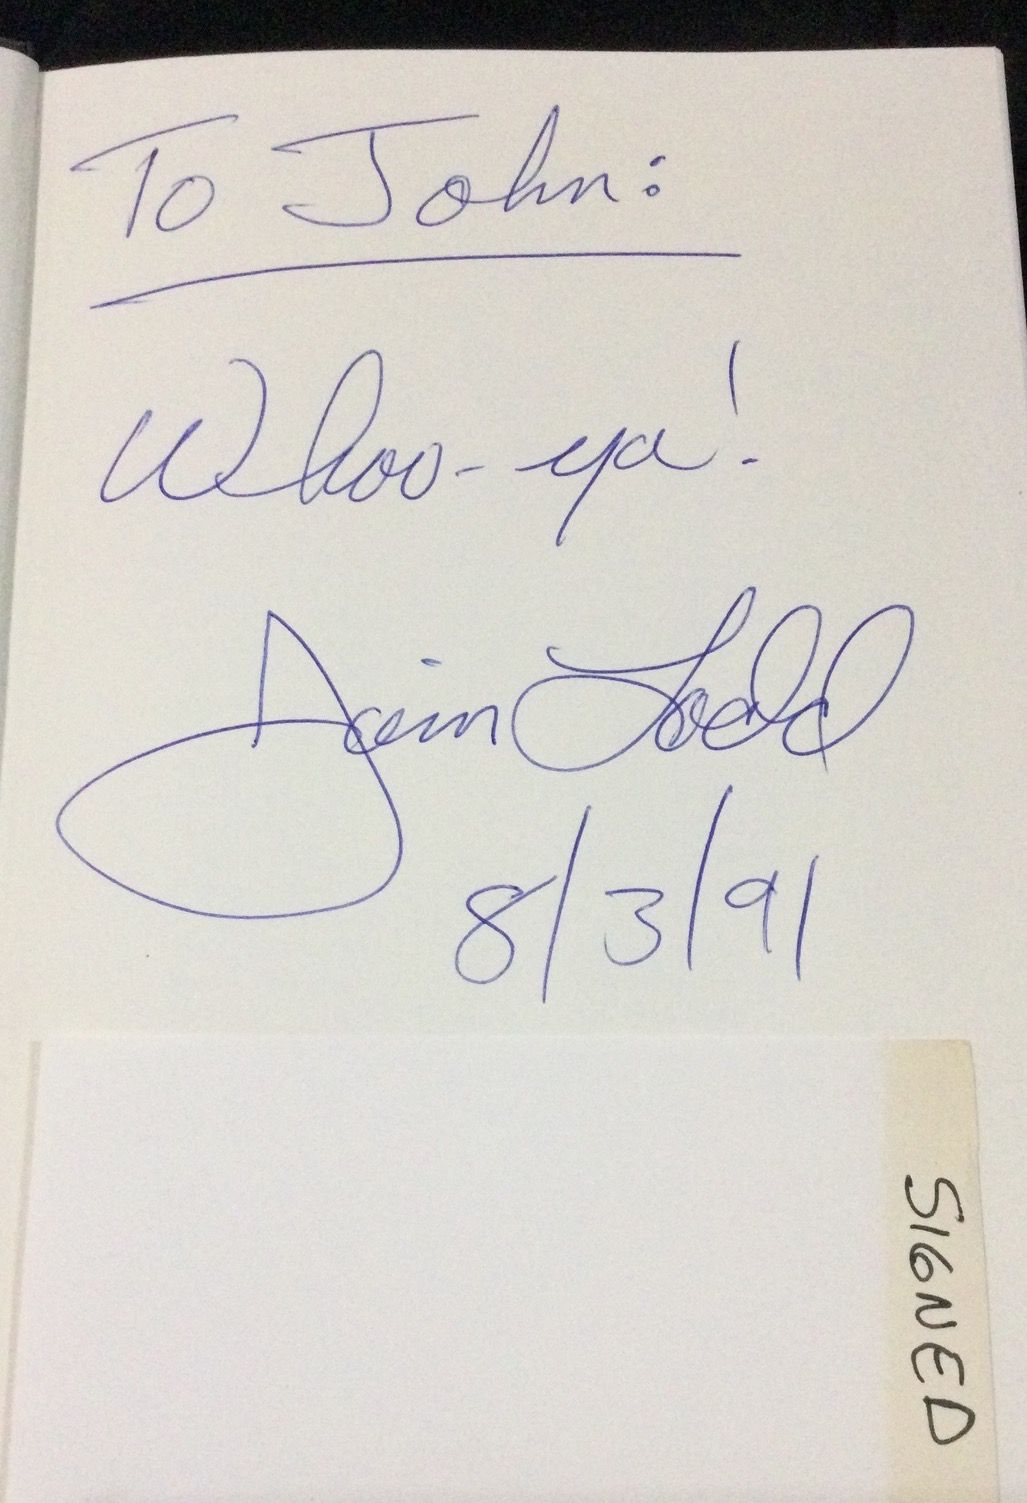 To John:
Whoo-ya!
Jim Todd
8/3/91
SIGNED